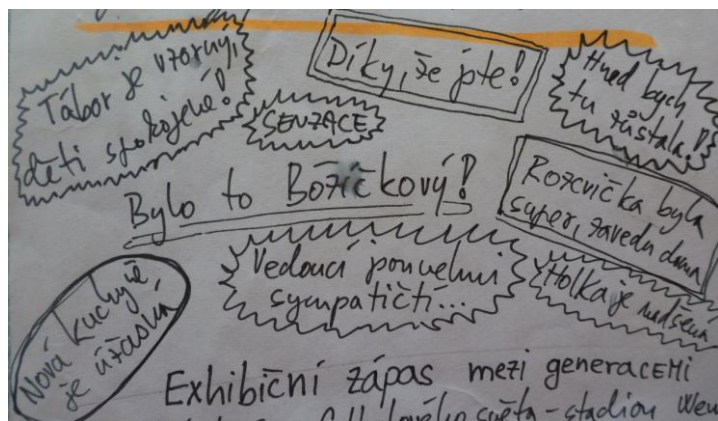 Tábor je vzorný,
děti spokojené!
Díky, že jste!
Hned bych
tu zůstala!
SENZACE
Bylo to Božíčkový!
Rozcvička byla
super, zavedu doma
Vedoucí jsou velmi
sympatičtí...
Holka je nadšená
Nová kuchyně
je úžasná
Exhibiční zápas mezi generacemi
světa - stadion